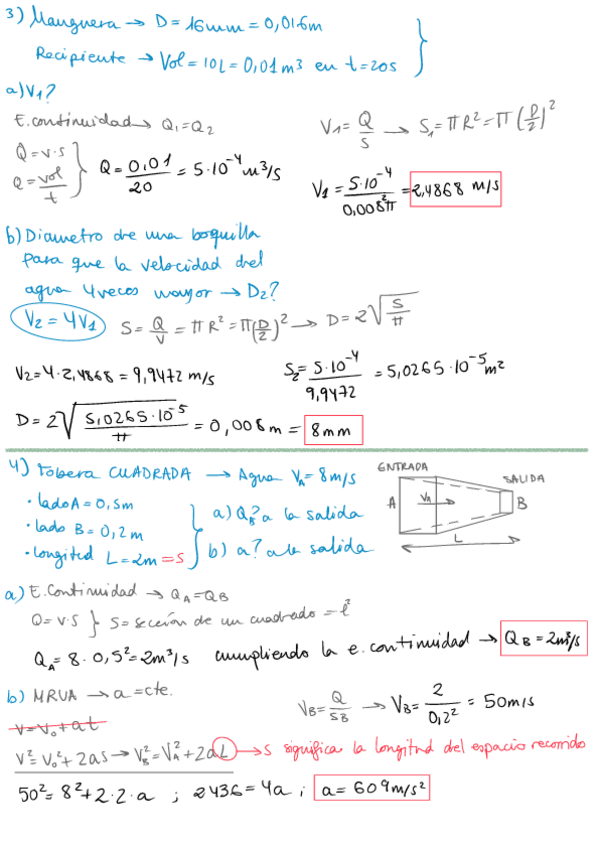 3) Manguera → D = 16mm = 0,016m
Recipiente → Vol = 10L = 0,01 m³ en t = 20s
a) V₁?
E. continuidad → Q₁ = Q₂
V₁ = Q/S → S₁ = πR² = π(D/2)²
Q = v·s
Q = vol/t
Q = 0,01/20 = 5·10⁻⁴ m³/s
V₁ = 5·10⁻⁴/0,008²π = 2,4868 m/s
b) Diametro de una boquilla
para que la velocidad del
agua 4 veces mayor → D₂?
V₂ = 4V₁
S = Q/V = πR² = π(D/2)² → D = 2√(S/π)
V₂ = 4·2,4868 = 9,9472 m/s
S₂ = 5·10⁻⁴/9,9472 = 5,0265·10⁻⁵ m²
D = 2√(5,0265·10⁻⁵/π) = 0,008 m = 8mm
4) Tobera CUADRADA → Agua V_A = 8m/s
· lado A = 0,5m
· lado B = 0,2m
· longitud L = 2m = S
a) Q_B? a la salida
b) a? a la salida
ENTRADA
SALIDA
A
V_A
B
L
a) E. Continuidad → Q_A = Q_B
Q = v·s } S = sección de un cuadrado = l²
Q_A = 8·0,5² = 2m³/s cumpliendo la e. continuidad → Q_B = 2m³/s
b) MRUA → a = cte.
V_B = Q/S_B → V_B = 2/0,2² = 50m/s
v = v₀ + at
v² = v₀² + 2as → V_B² = V_A² + 2aL → S significa la longitud del espacio recorrido
50² = 8² + 2·2·a ; 2436 = 4a ; a = 609m/s²